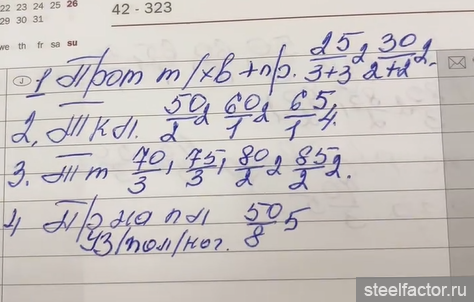 22 23 24 25 26
29 30 31
42 - 323
we th fr sa su
1 Прот т/хв+пр. 25/3+3 2 30/2+2 2.
2. Т К П. 50/2 2 60/1 2 65/1 4.
3. Т т 70/3, 75/3, 80/2 2 85/2 2.
4 Пр на пл 50/8 5
УЗ/пол/ног.
steelfactor.ru